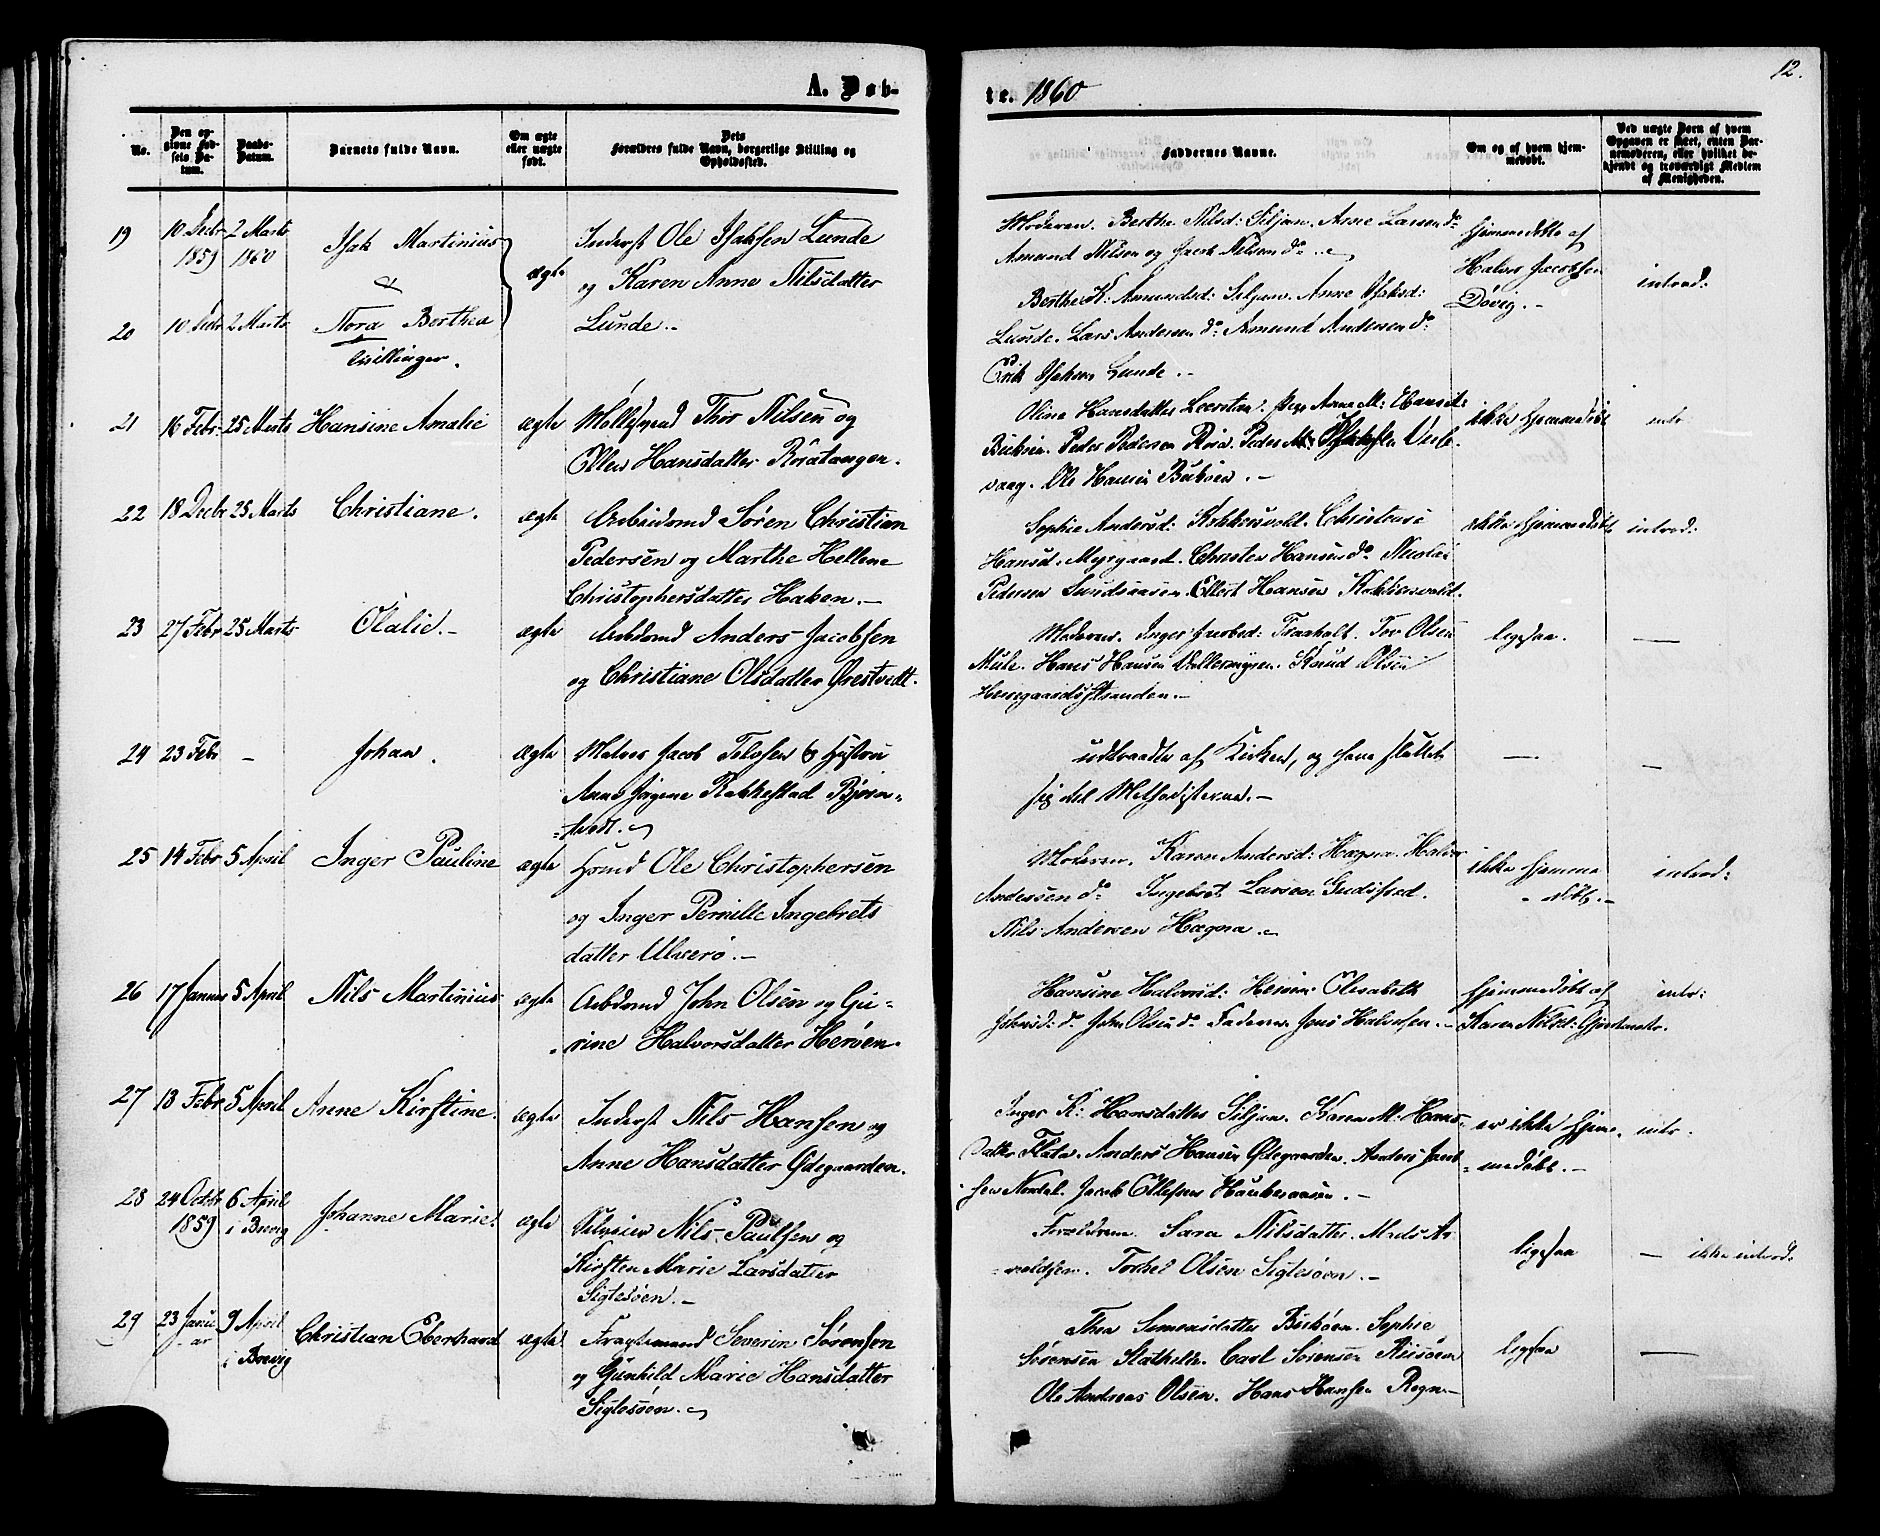 A. Døb-
te. 1860
12.
No.
Den opgivne Fødsels Datum.
Daabs-Datum.
Barnets fulde Navn.
Om ægte eller uægte født.
Dets Forældres fulde Navn, borgerlige Stilling og Opholdssted.
Faddernes Navne.
Om og af hvem hjemmedøbt.
Ved uægte Børn af hvem Opgaven er skeet, enten Barnemoderen, eller hvilket bekjendt og troværdigt Medlem af Menigheden.
19 10 Decbr 1859 2 Marts 1860 Isak Martinius ægte Inderst Ole Isaksen Lunde
og Karen Anne Nilsdatter
&
20 10 Decbr 2 Marts Nora Berthea Lunde.
Tvillinger.
Moderen. Berthe Nilsd: Siljan. Anne Larsen do
Amund Nilsen og Jacob Nilsen do
Berthe K: Amundsd: Siljan. Anne Isaksd:
Lunde. Lars Andersen do Amund Andersen do
Erik Isaksen Lunde.
hjemmedøbte af
Halvor Jacobsen
Døvig.
introd:
21 16 Febr 25 Marts Hansine Amalie ægte Møllesvend Thor Nilsen og
Ellen Hansdatter Roratangen.
Oline Hansdatter Anne M: Hansd:
Peder Pedersen Rora. Peder M:
vaag. Ole Hansen
ikke hjemmedøbt
intr
22 18 Decbr 25 Marts Christiane. ægte Arbeidsmd Søren Christian
Pedersen og Marthe Hellene
Christophersdatter Haken.
Sophie Andersd: Kokkersvold. Christense
Hansd. Myrgaard. Christen Hansen do Nicolai
Pedersen Ellert Hansen Kokkersvold.
ikke hjemmedøbt
introd:
23 27 Febr 25 Marts Olalie. ægte Arbdsmd Anders Jacobsen
og Christiane Olsdatter Ørestvedt.
Moderen. Inger Jacobsd: Traaholt. Tor Olsen
Mule. Hans Hansen Vallermyren. Knud Olsen
Herregaardsstranden.
ligesaa
24 23 Febr Johan. ægte Matros Jacob Tolvsen & Hustru
Anne Jørgene Rakkestad Bjørn-
tvedt.
udtraadte af Kirken, og have sluttet
sig til Methodisterne.
25 14 Febr 5 April Inger Pauline ægte Hsmd Ole Christophersen
og Inger Pernille Ingebrets
datter Ulverø.
Moderen. Karen Andersd: Hegna. Halvor
Andersen do Ingebret Larsen
Nils Andersen Hegna.
ikke hjemme
døbt.
introd:
26 17 Januar 5 April Nils Martinius ægte Arbdsmd John Olsen og Gu-
rine Halvorsdatter Herøen.
Hansine Halvorsd: Herøen Elisabeth
Johnsd: do John Olsen do Faderen. Jens Halvorsen.
hjemmedøbt af
Karen Nilsd:
intr:
27 13 Febr 5 April Anne Kirstine. ægte Inderst Nils Hansen og
Anne Hansdatter Ødegaarden.
Inger K: Hansdatter Siljan. Karen M: Hans-
datter Flata. Anders Hansen Ødegaarden. Anders Jacob-
sen Nordal. Jacob Ellefsen
er ikke hjem-
medøbt.
intr.
28 24 Octbr 1859 6 April i Brevig Johanne Marie. ægte Nils Paulsen og
Kirsten Marie Larsdatter
Siglesøen.
Forældrene. Sara Nilsdatter. Mads Ar-
Torkel Olsen Siglesøen.
ligesaa
ikke introd.
29 23 Janu-ar 9 April i Brevig Christian Eberhard ægte Fragtemand Severin Sørensen
og Gunhild Marie Hansdatter
Siglesøen.
Thea Simonsdatter Sophie
Sørensen Stathelle. Carl Sørensen
Ole Andreas Olsen. Hans Hansen Rogn
ligesaa